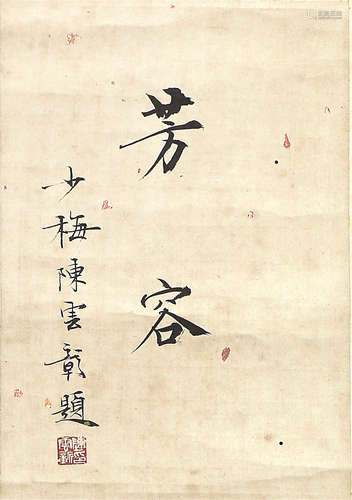 芳容
少梅陳雲彰題